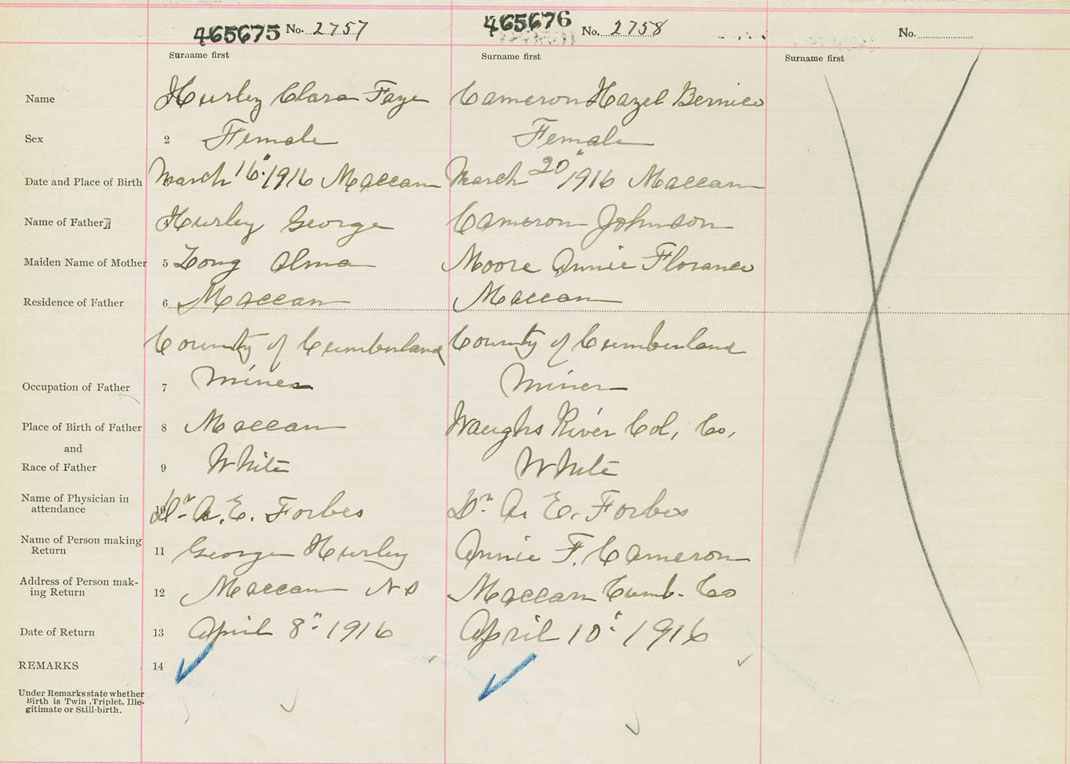 465675 No. 2757 465676 No. 2758 No.
Surname first Surname first Surname first
Name Hurley Clara Faye Cameron Hazel Bernice
Sex 2 Female Female
Date and Place of Birth March 16" 1916 Maccan March 20" 1916 Maccan
Name of Father Hurley George Cameron Johnson
Maiden Name of Mother 5 Long Alma Moore Annie Florance
Residence of Father 6 Maccan Maccan
County of Cumberland County of Cumberland
Occupation of Father 7 Miner Miner
Place of Birth of Father 8 Maccan Waughs River Col, Co,
and
Race of Father 9 White White
Name of Physician in
attendance 10 Dr. A. E. Forbes Dr. A. E. Forbes
Name of Person making
Return 11 George Hurley Annie F. Cameron
Address of Person mak-
ing Return 12 Maccan N S Maccan Cumb. Co
Date of Return 13 April 8" 1916 April 10" 1916
REMARKS 14
Under Remarks state whether
Birth is Twin, Triplet, Ille-
gitimate or Still-birth.